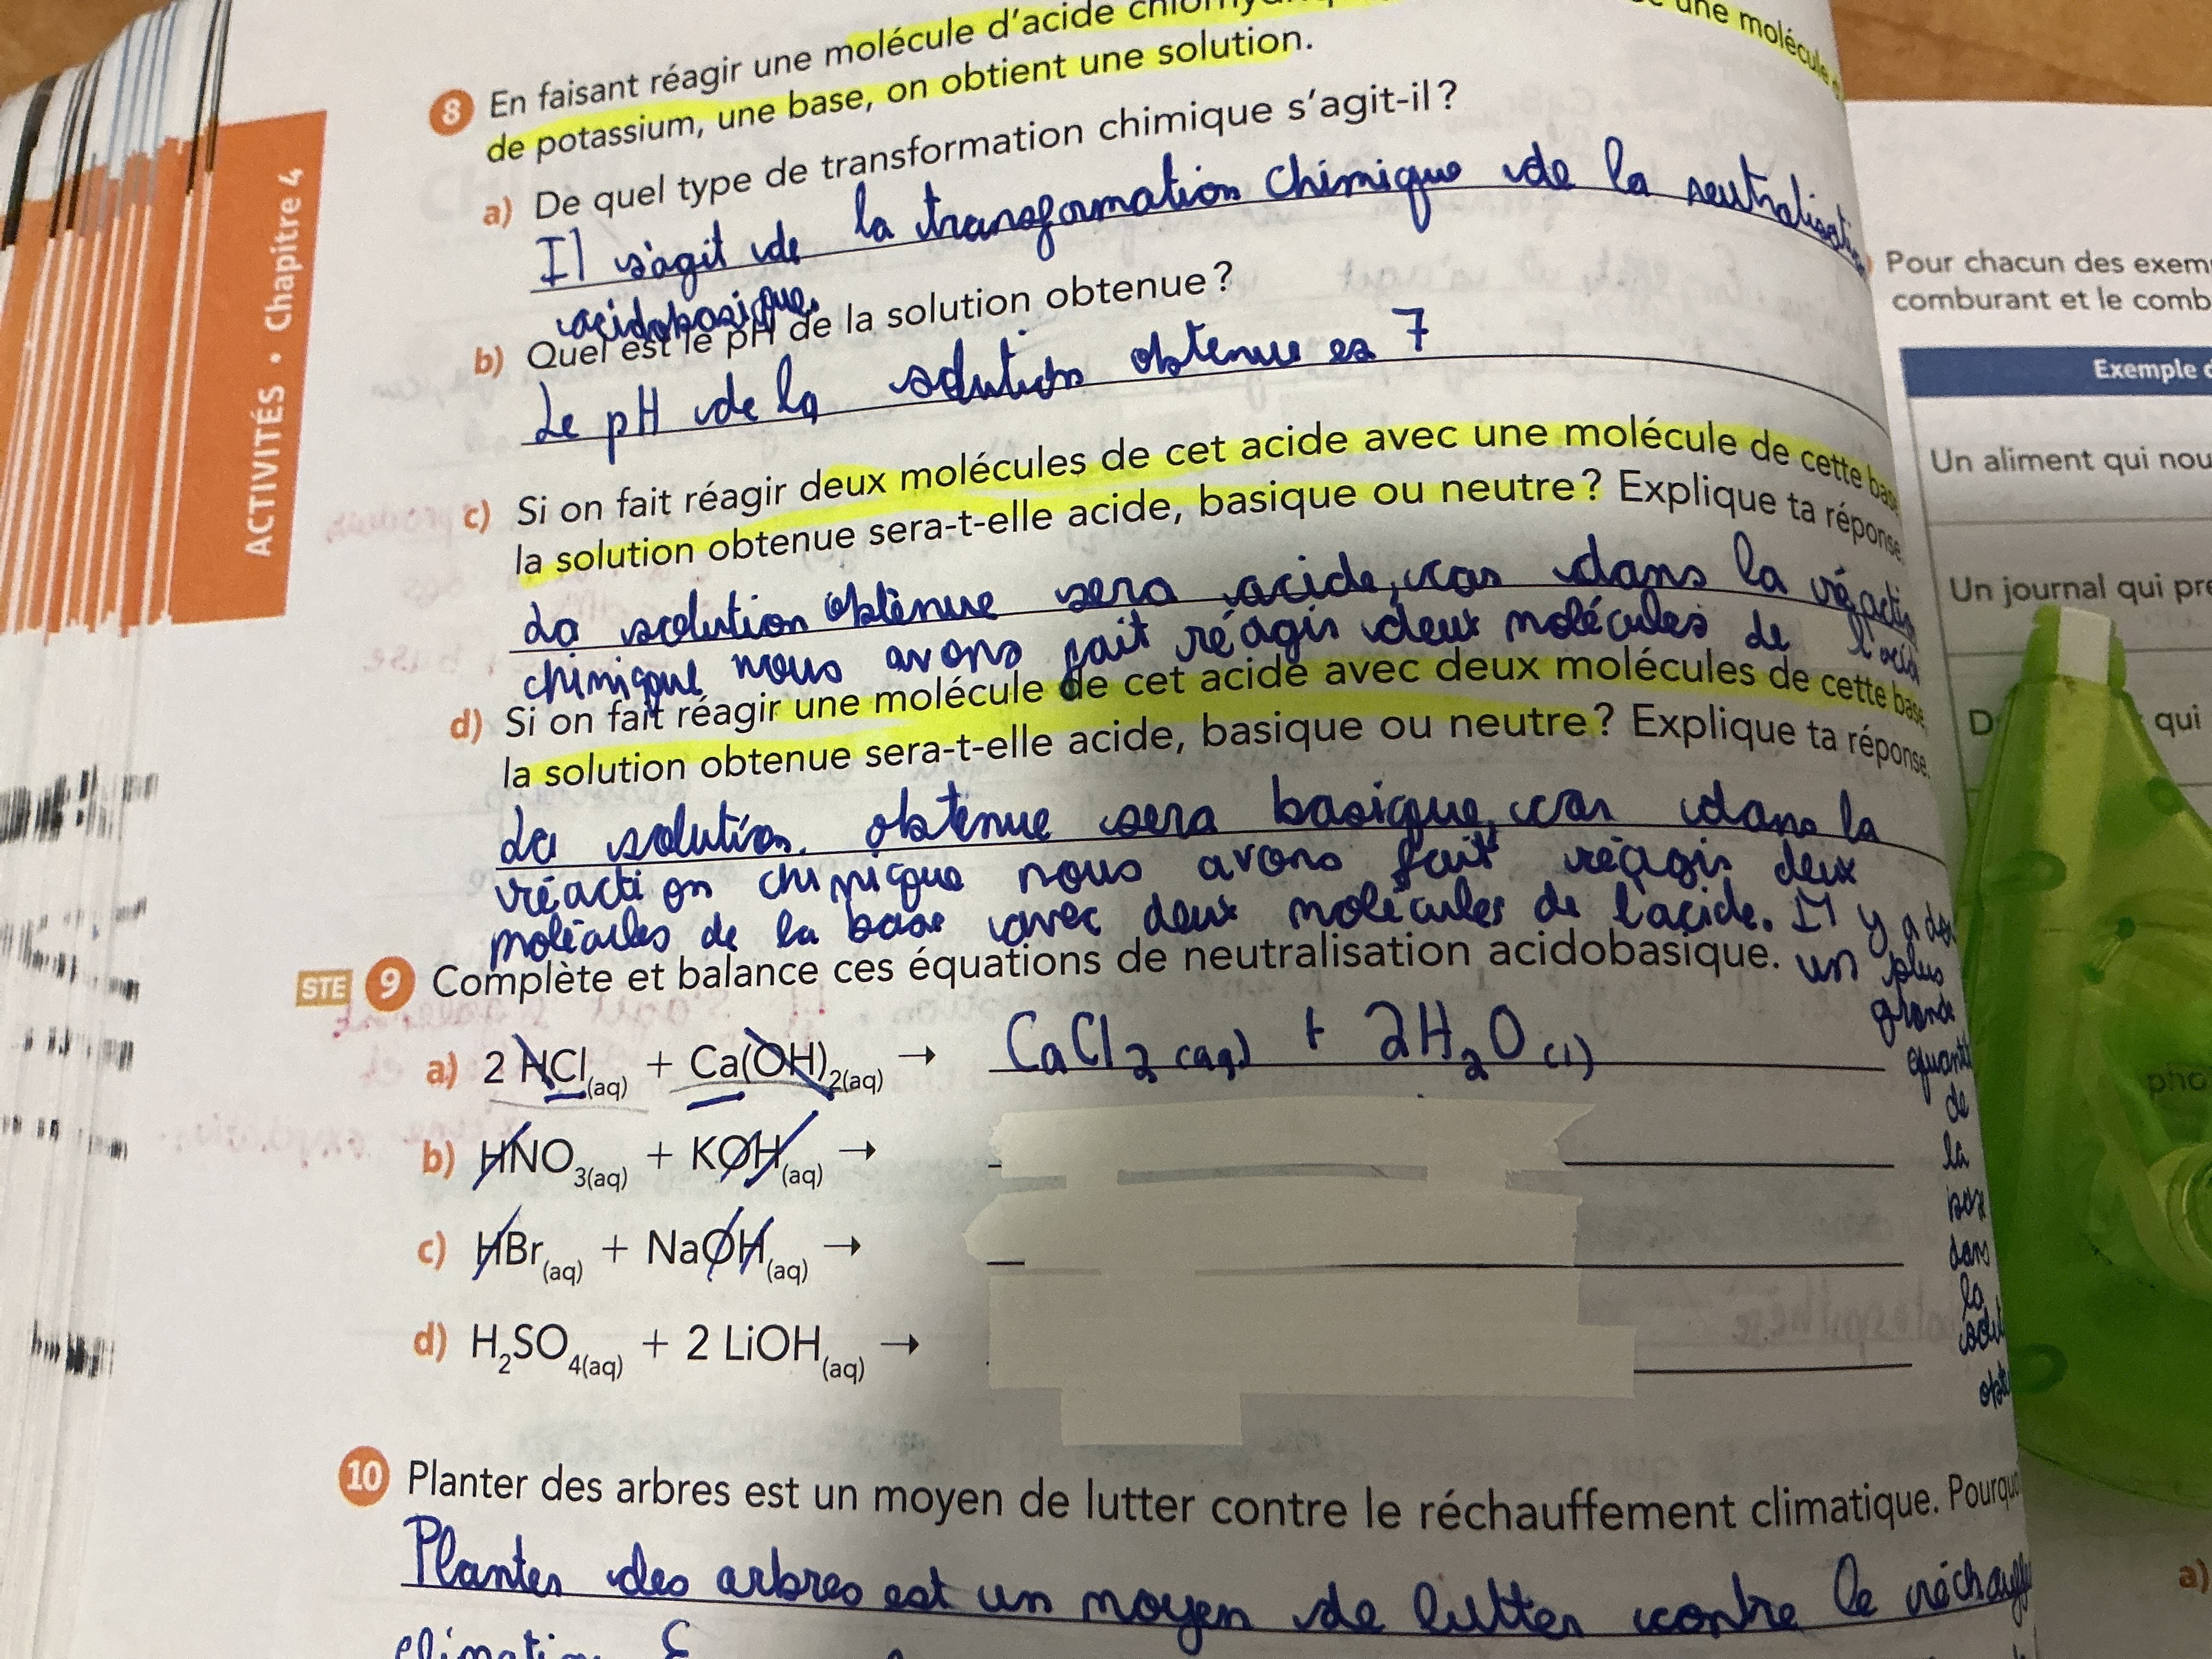 8 En faisant réagir une molécule d'acide
de potassium, une base, on obtient une solution.
une molécule
a) De quel type de transformation chimique s'agit-il ?
Il s'agit de la transformation chimique de la neutralisation
acidobasique.
b) Quel est le pH de la solution obtenue ?
Le pH de la solution obtenue es 7
c) Si on fait réagir deux molécules de cet acide avec une molécule de cette base
la solution obtenue sera-t-elle acide, basique ou neutre ? Explique ta réponse.
La solution obtenue sera acide, car dans la
chimique nous avons fait réagir deux molécules de l'acid
d) Si on fait réagir une molécule de cet acide avec deux molécules de cette base
la solution obtenue sera-t-elle acide, basique ou neutre ? Explique ta réponse.
La solution obtenue sera basique, car dans la
réaction chimique nous avons fait réagir deux
molécules de la base avec deux molécules de l'acide. Il y a
un plus
grande
de
la
dans
la
STE 9 Complète et balance ces équations de neutralisation acidobasique.
a) 2 HCl(aq) + Ca(OH)2(aq) → CaCl2 (aq) + 2H2O (l)
b) HNO3(aq) + KOH(aq) →
c) HBr(aq) + NaOH(aq) →
d) H2SO4(aq) + 2 LiOH(aq) →
10 Planter des arbres est un moyen de lutter contre le réchauffement climatique.
Planter des arbres est un moyen de lutter contre le
ACTIVITÉS • Chapitre 4
Pour chacun des
comburant et le
Exemple
Un aliment qui
Un journal qui
qui
a)